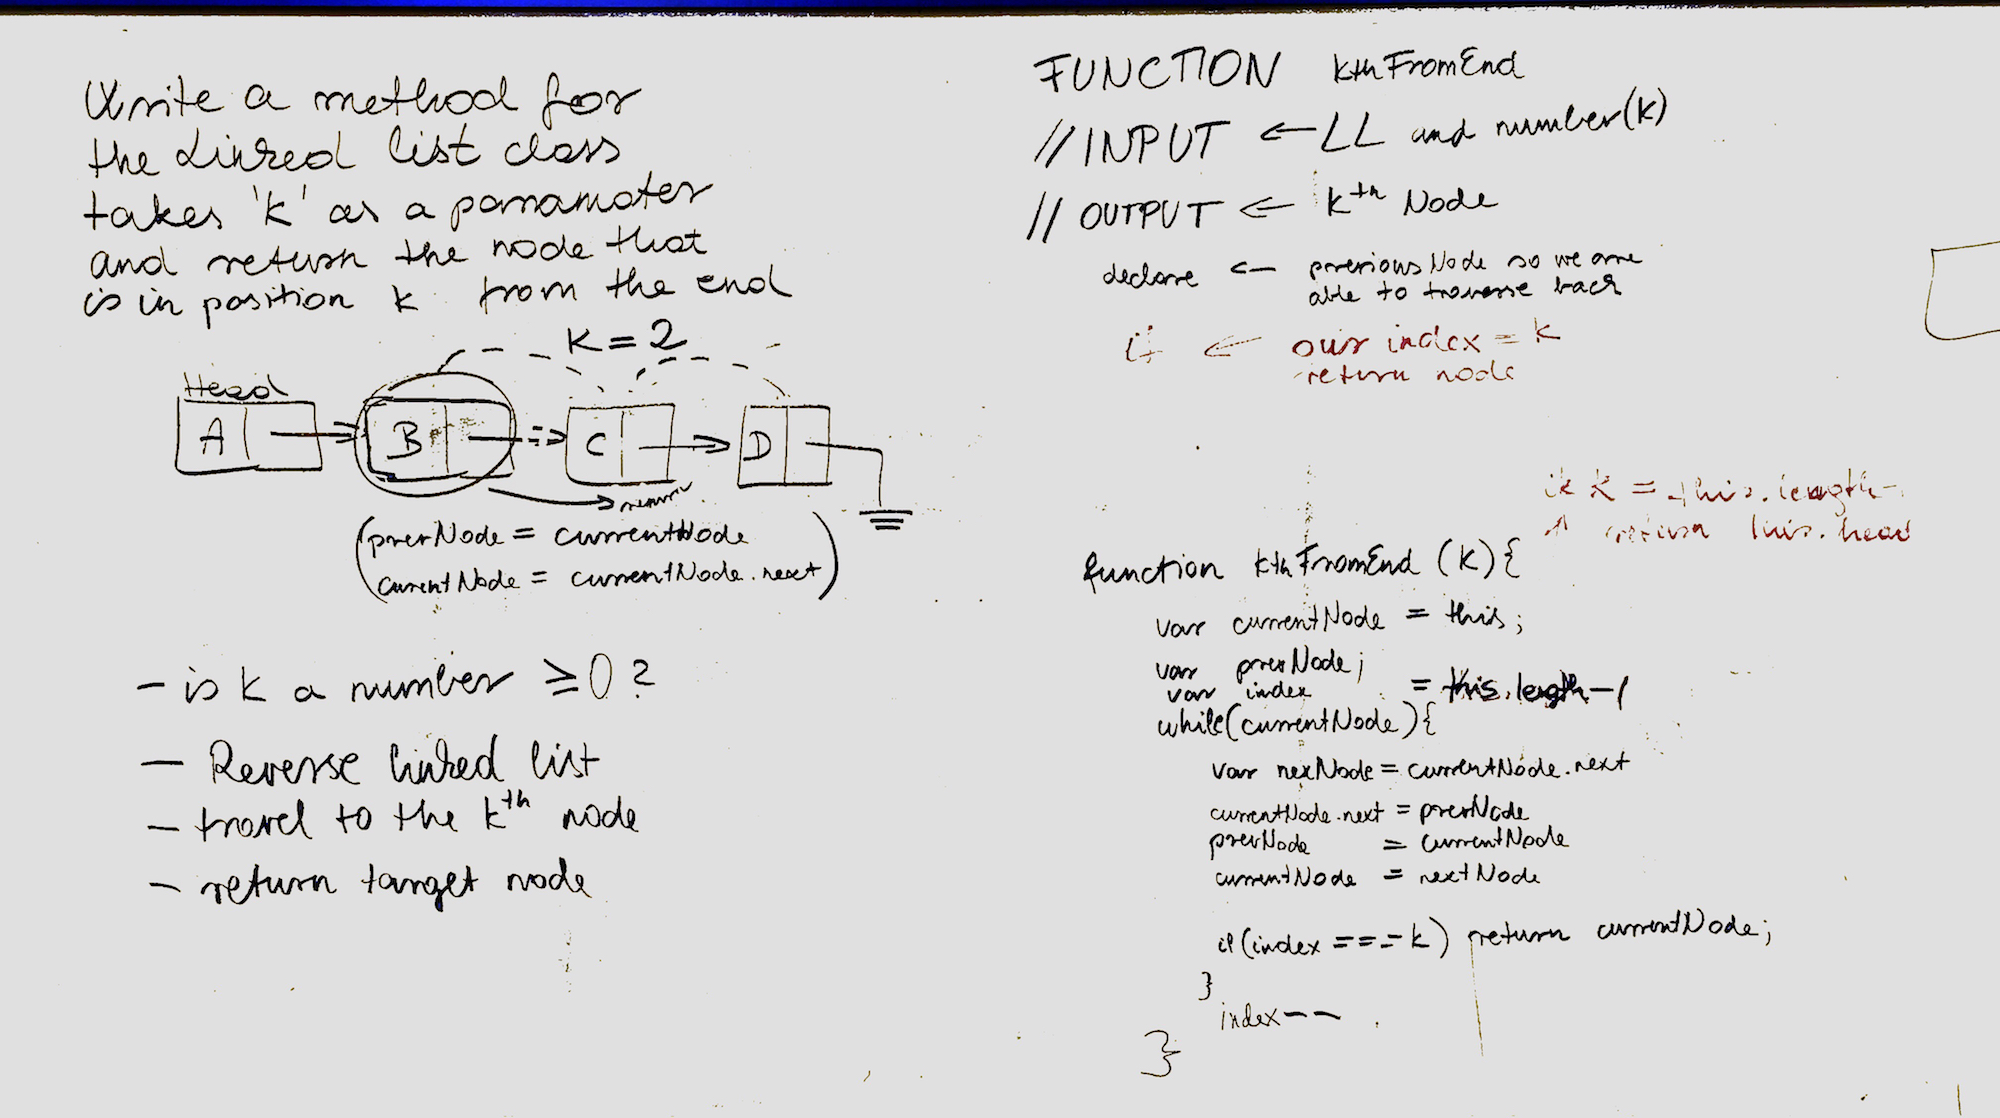 Write a method for
the Linked list class
takes 'k' as a paramater
and return the node that
is in position k from the end
K = 2
Head
A
B
C
D
return
(prevNode = currentNode
currentNode = currentNode.next)
- is k a number ≥ 0 ?
- Reverse linked list
- travel to the kth node
- return target node
FUNCTION kthFromEnd
// INPUT ← LL and number(k)
// OUTPUT ← kth Node
declare ← previousNode so we are
able to traverse back
if ← our index = k
return node
if k = this.length-1
return this.head
function kthFromEnd (k) {
var currentNode = this;
var prevNode;
var index = this.length-1
while(currentNode){
var nexNode = currentNode.next
currentNode.next = prevNode
prevNode = currentNode
currentNode = nextNode
if (index === k) return currentNode;
}
index--
}